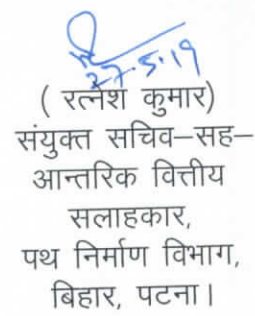 27-5-19
( रत्नेश कुमार)
संयुक्त सचिव–सह–
आन्तरिक वित्तीय
सलाहकार,
पथ निर्माण विभाग,
बिहार, पटना।